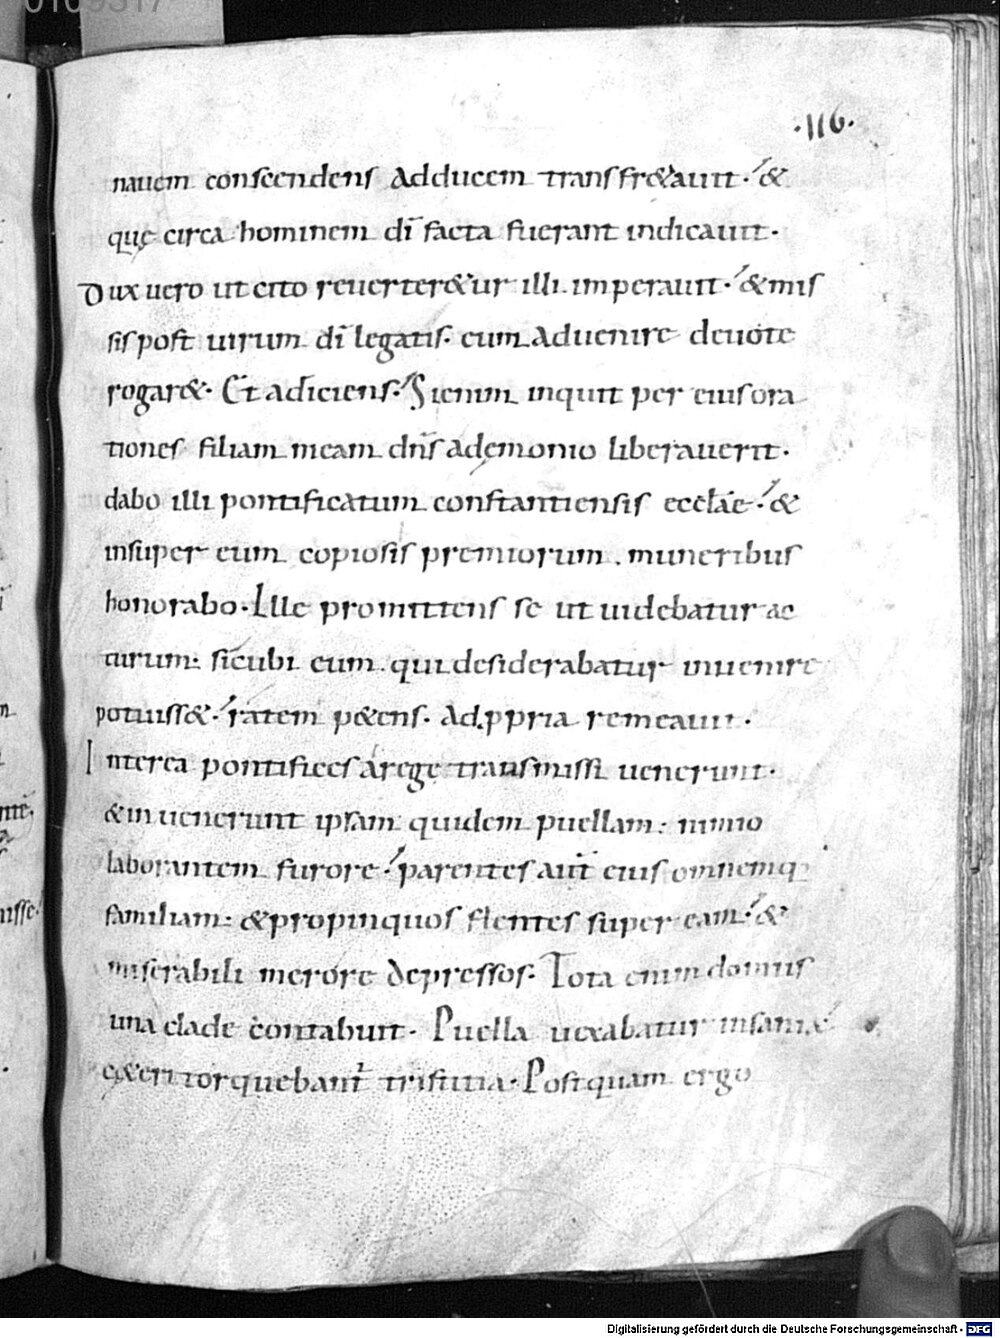 ·116·
nauem conscendens adducem transfr&auit· &
quę circa hominem dī facta fuerant indicauit·
Dux uero ut cito reuerter&ur illi imperauit· & mis
sis post uirum dī legatis· eum aduenire deuote
rogar&· Et adiciens· Si enim inquit per eius ora
tiones filiam meam dn̄s ademonio liberauerit·
dabo illi pontificatum constantiensis eccłae· &
insuper eum copiosis premiorum muneribus
honorabo· Ille promittens se ut uidebatur ac
turum· sicubi eum qui desiderabatur inuenire
potuiss&· ratem p&ens· Ad ppria remeauit·
Interea pontifices arege transmissi uenerunt·
& inuenerunt ipsam quidem puellam· nimio
laborantem furore· parentes aut̄ eius omnemq
familiam· & propinquos flentes super eam· &
miserabili merore depressos· Tota enim domus
una clade contabuit· Puella uexabatur insania
c&eri torquebant̄ tristitia· Postquam ergo
Digitalisierung gefördert durch die Deutsche Forschungsgemeinschaft - DFG